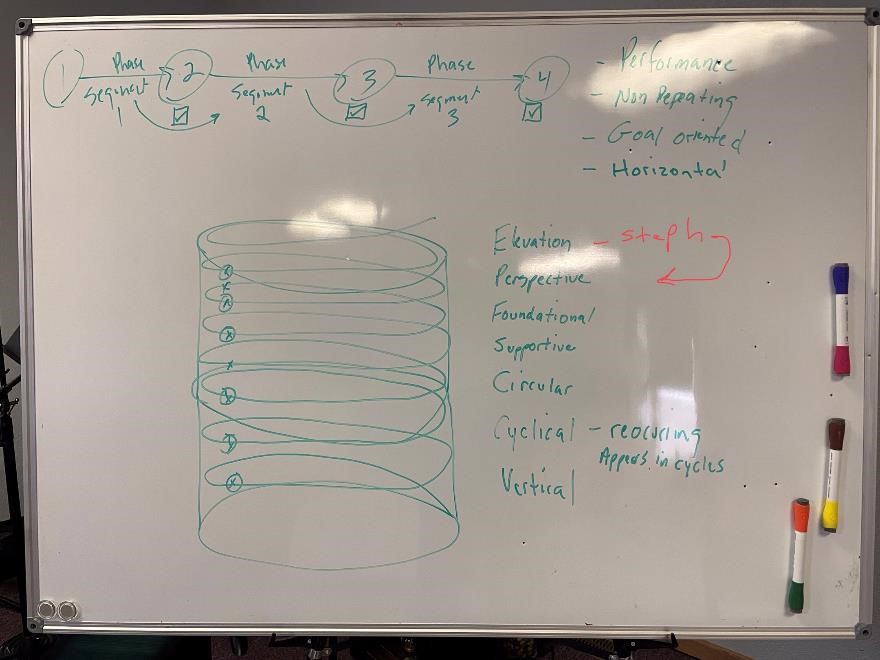 1 Phase 2 Phase 3 Phase 4
Segment Segment Segment
1 2 3
- Performance
- Non Repeating
- Goal oriented
- Horizontal
Elevation - steph
Perspective
Foundational
Supportive
Circular
Cyclical - reocuring
Appers in cycles
Vertical